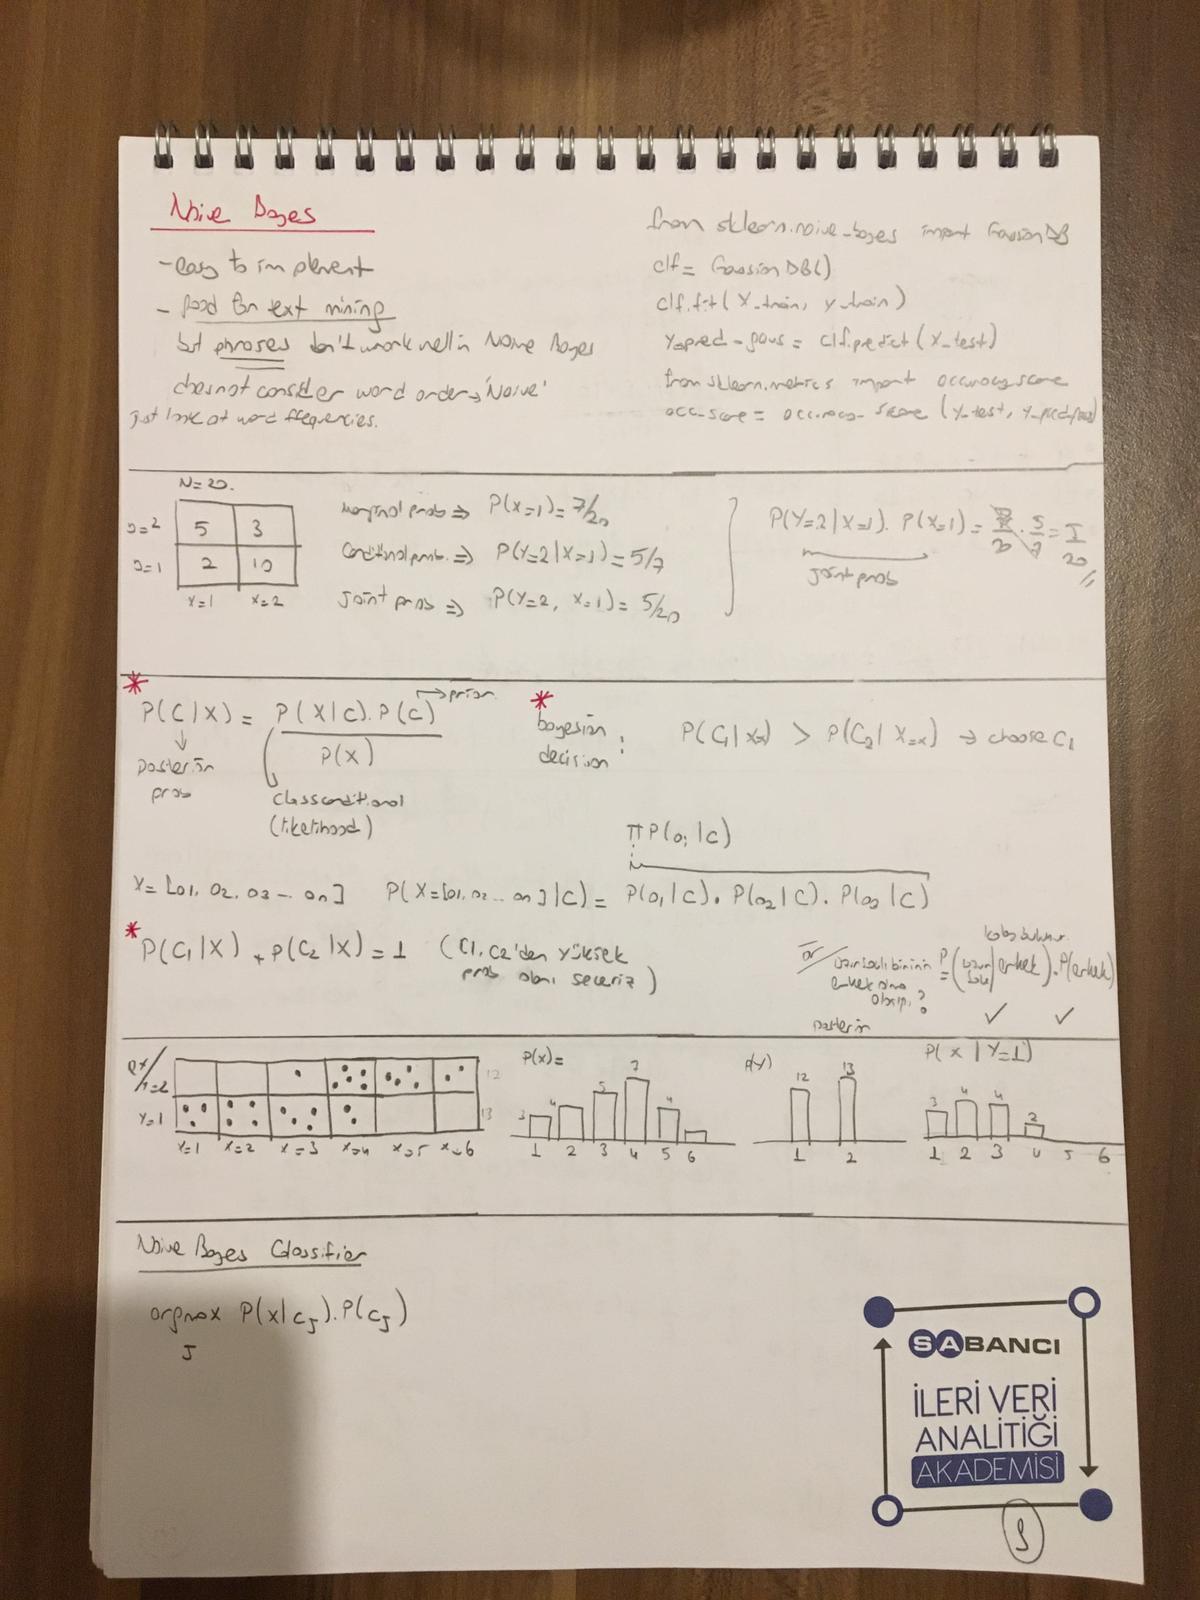 Naive Bayes
- easy to implement
- Good for text mining
but phrases don't work well in Naive Bayes
does not consider word order → 'Naive'
just look at word frequencies.
from sklearn.naive_bayes import GaussianDB
clf = GaussianDB()
clf.fit(X_train, y_train)
y_pred_gaus = clf.predict(X_test)
from sklearn.metrics import accuracy_score
acc_score = accuracy_score (y_test, y_pred_gaus)
N=20.
y=2 5 3
y=1 2 10
x=1 x=2
Marginal prob ⇒ P(X=1) = 7/20
Conditional prob. ⇒ P(Y=2|X=1) = 5/7
Joint prob ⇒ P(Y=2, X=1) = 5/20
P(Y=2|X=1). P(X=1) = 7/20 . 5/7 = 5/20
Joint prob
* P(C|X) = P(X|C).P(C) / P(X)
→ prior
Posterior prob
class conditional
(likelihood)
* bayesian decision : P(C1|X=x) > P(C2|X=x) → choose C1
∏ P(ai|C)
i
X = [a1, a2, a3 ... an] P(X=[a1, a2 ... an]|C) = P(a1|C). P(a2|C). P(a3|C)
* P(C1|X) + P(C2|X) = 1 (C1, C2'den yüksek
prob olanı seceriz)
kolay bulunur.
ör/ uzun saclı birinin erkek olma olasılığı? = P(uzun sac|erkek).P(erkek)
posterior ✓ ✓
Y=2 12
Y=1 13
X=1 X=2 X=3 X=4 X=5 X=6
P(X)=
3 4 5 7 4
1 2 3 4 5 6
P(Y)
12 13
1 2
P(X|Y=1)
3 4 4 2
1 2 3 4 5 6
Naive Bayes Classifier
argmax P(x|cJ).P(cJ)
J
SABANCI
İLERİ VERİ
ANALİTİĞİ
AKADEMİSİ